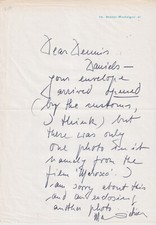 Dear Dennis
Daniels —
your envelope
arrived opened
(by the customs,
I think) but
there was only
one photo in it
namely from the
film
I am sorry about this
and am enclosing
another photo